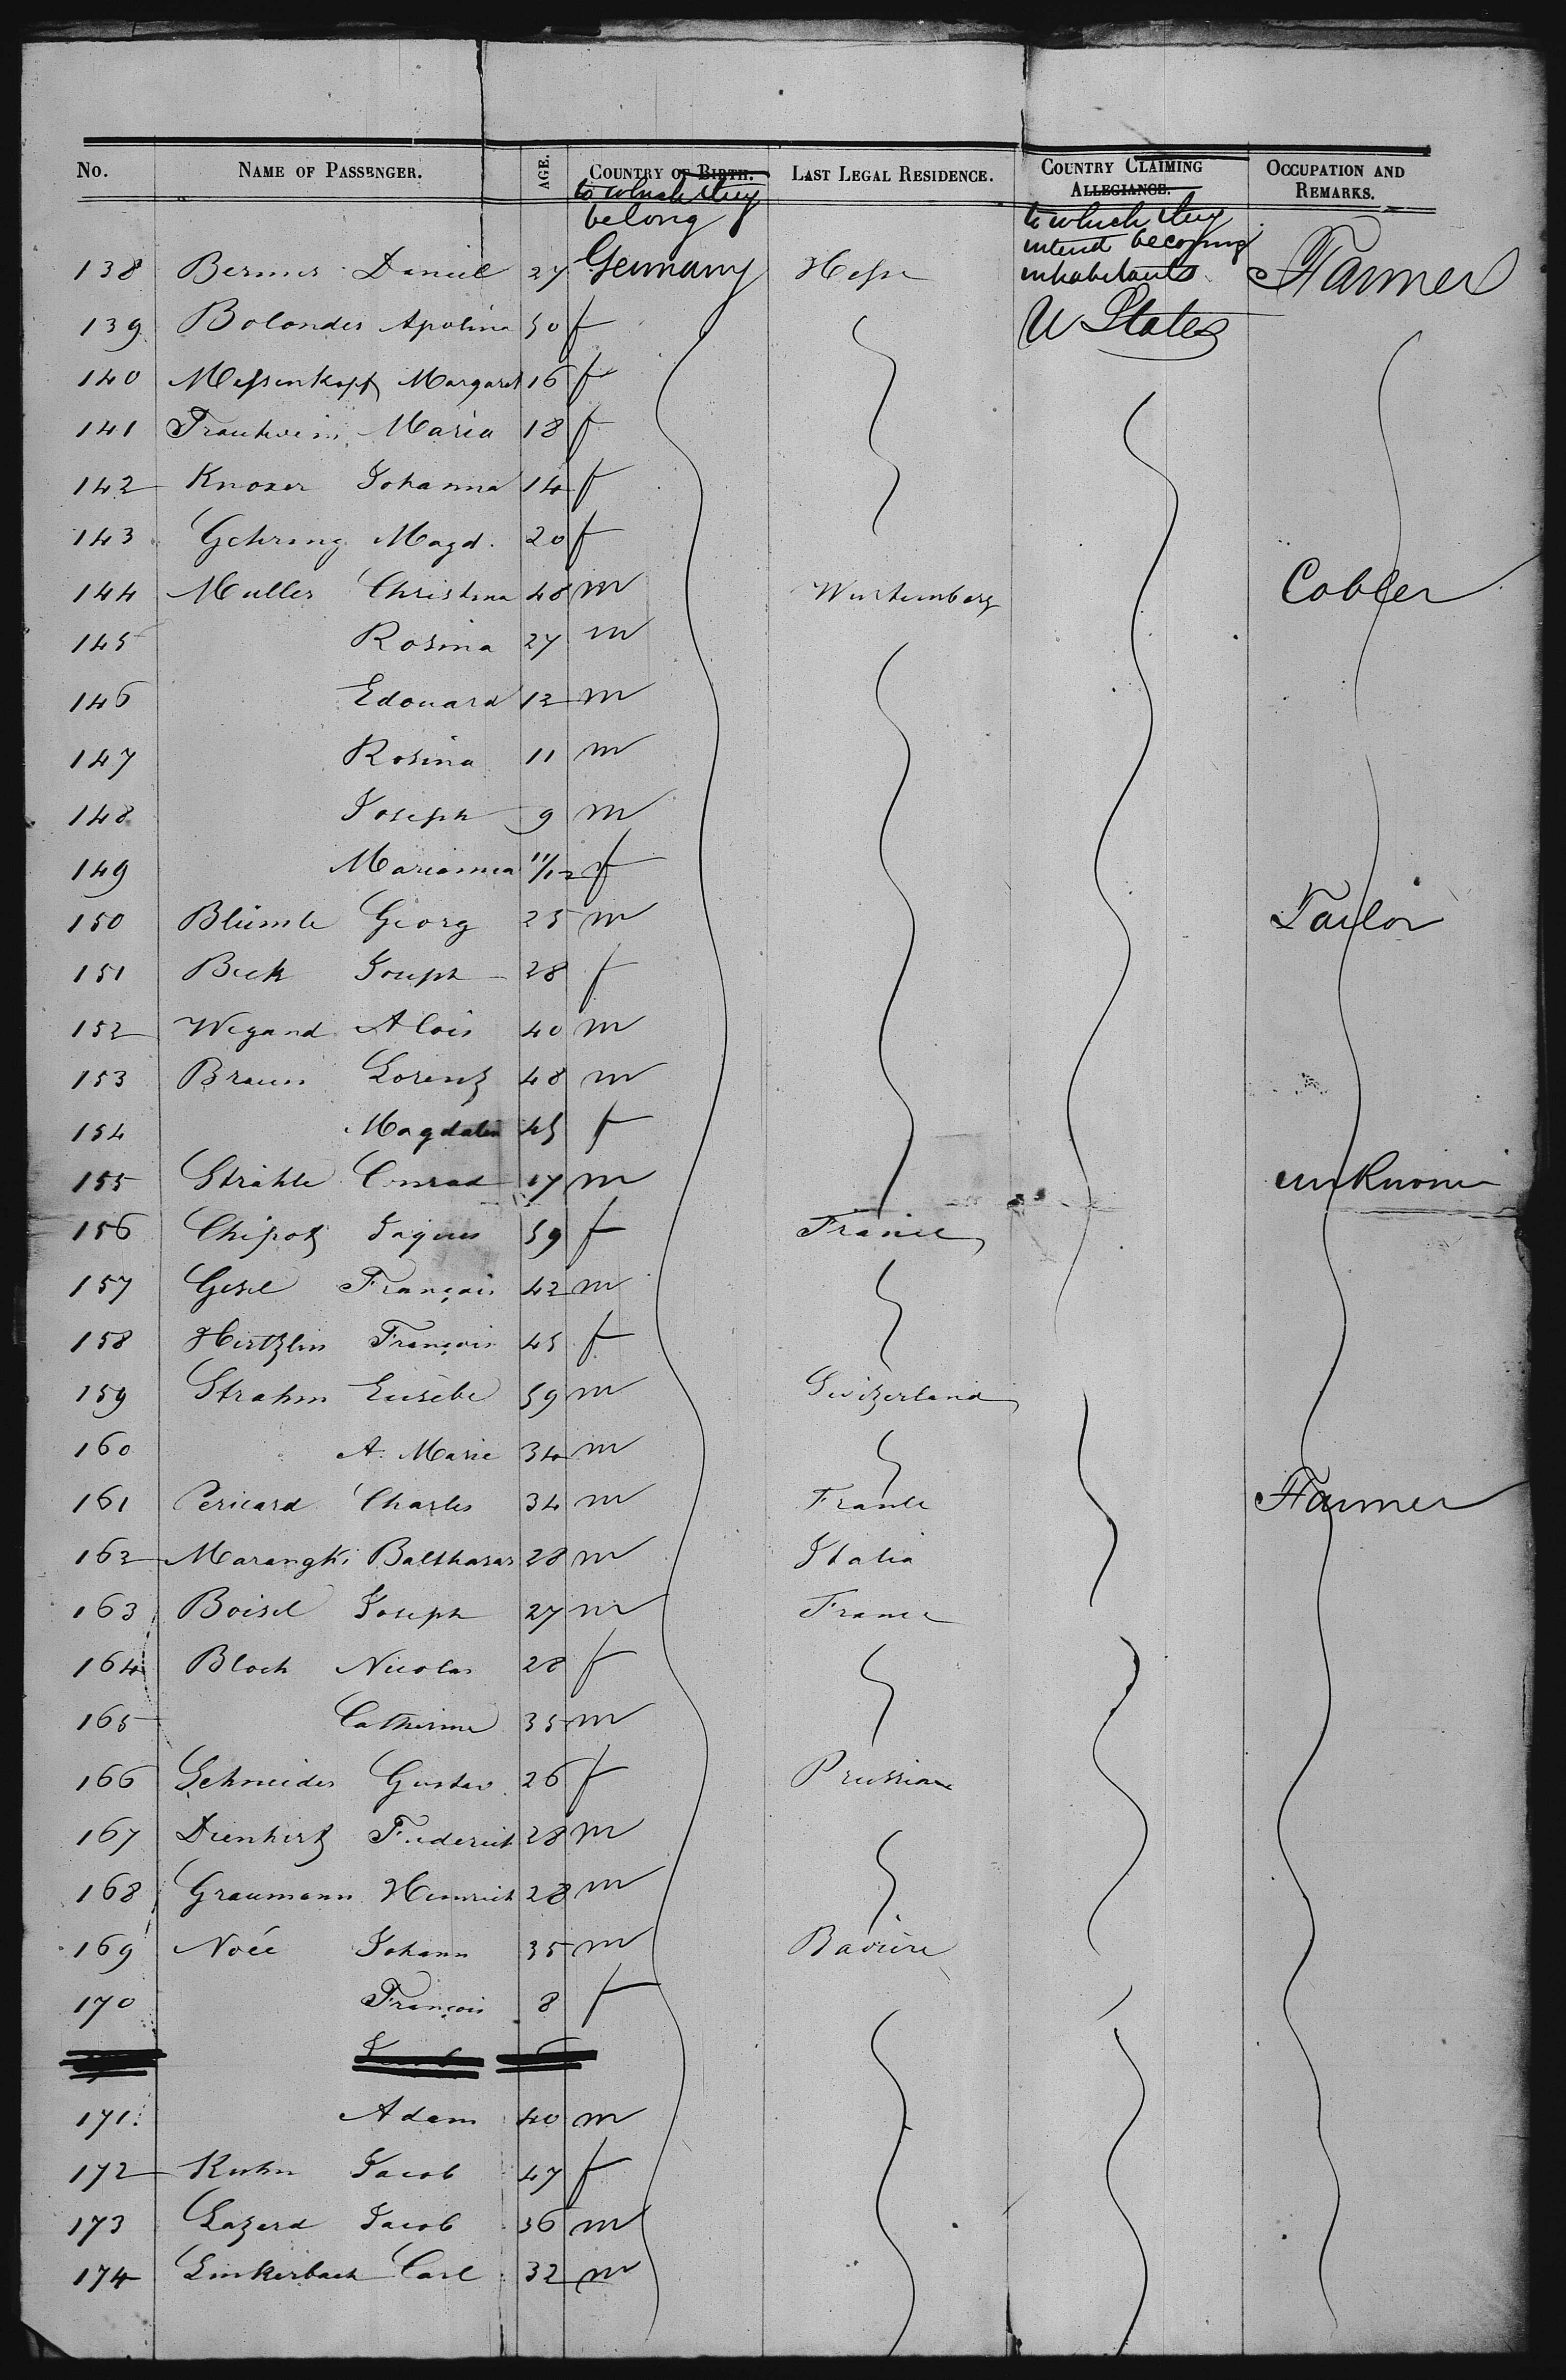 No. NAME OF PASSENGER. AGE. COUNTRY OF BIRTH. LAST LEGAL RESIDENCE. COUNTRY CLAIMING ALLEGIANCE. OCCUPATION AND REMARKS.
to which they belong
to which they intend becoming inhabitants
138 Daniel 27 Germany Hesse U States Farmer
139 Bolander Apolina 50 f
140 Messenkopf Margaret 16 f
141 Trautwein Maria 18 f
142 Knoxer Johanna 14 f
143 Gehring Magd. 20 f
144 Muller Christina 48 m Wurtemberg Cobler
145 Rosina 27 m
146 Edouard 12 m
147 Rosina 11 m
148 Joseph 9 m
149 Marianna 11/12 f
150 Blümle Georg 25 m Tailor
151 Beck Joseph 28 f
152 Wegand Alois 40 m
153 Braun Lorenz 48 m
154 Magdalen 45 f
155 Strähle Conrad 17 m unknown
156 Chipot Jaques 59 f France
157 Gesel François 42 m
158 Hertzlin François 45 f
159 Strahm Eusèbe 59 m Switzerland
160 A. Marie 34 m
161 Pericard Charles 34 m France Farmer
162 Marangki Balthasar 28 m Italia
163 Boisel Joseph 27 m France
164 Bloch Nicolas 28 f
165 Catherine 35 m
166 Schneider Gustav 26 f Prussia
167 Frederick 28 m
168 Graumann Heinrich 28 m
169 Noée Johann 35 m Bavière
170 François 8 f
171. Adam 40 m
172 Kuhn Jacob 47 f
173 Lazard Jacob 36 m
174 Linkerbach Carl 32 m